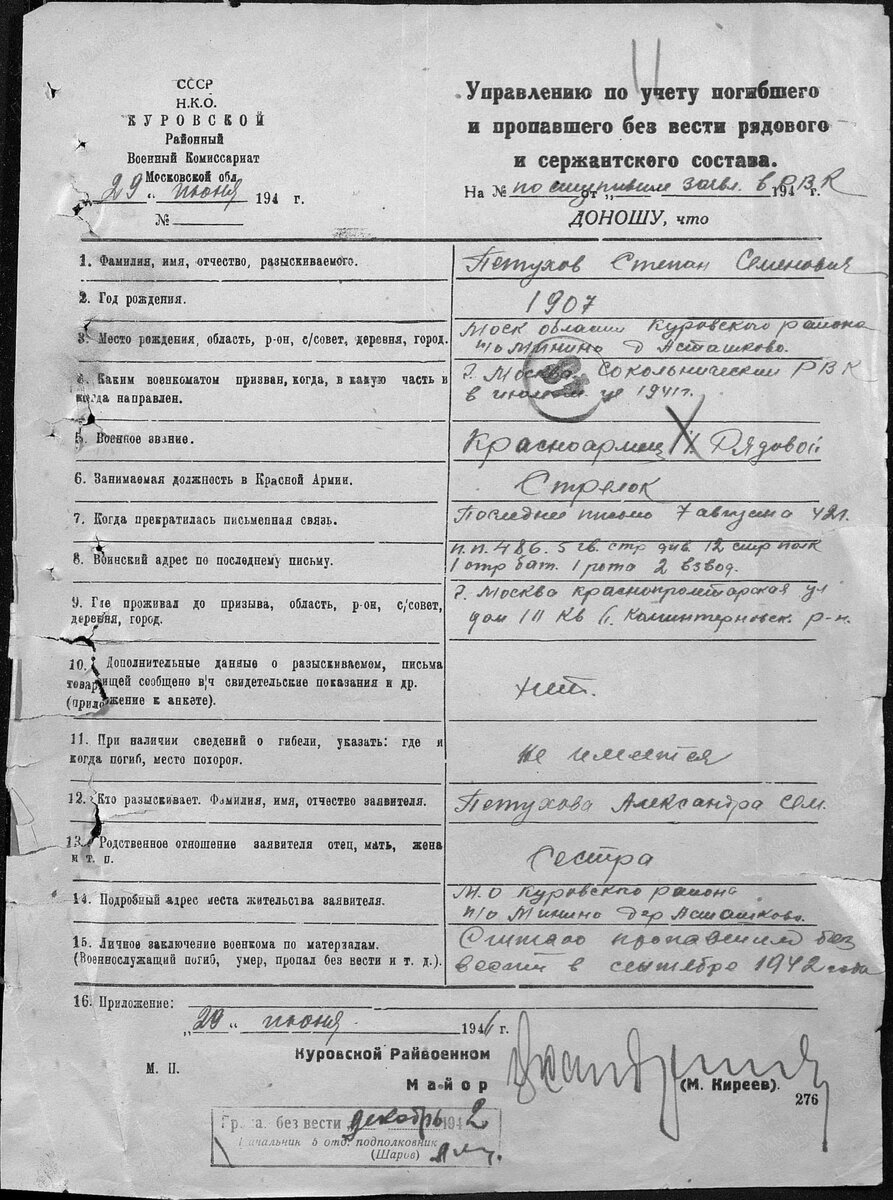 СССР
Н.К.О.
КУРОВСКОЙ
Районный
Военный Комиссариат
Московской обл.
„29„ июня 194 г.
№
Управлению по учету погибшего
и пропавшего без вести рядового
и сержантского состава.
На № поступившим заявл. в РВК от „ 194 г.
ДОНОШУ, что
1. Фамилия, имя, отчество, разыскиваемого.
Петухов Степан Семенович
2. Год рождения.
1907
3. Место рождения, область, р-он, с/совет, деревня, город.
Моск области Куровского района
п/о Минино д Асташково.
4. Каким военкоматом призван, когда, в какую часть и
когда направлен.
г. Москва Сокольнический РВК
в июле м-це 1941г.
5. Военное звание.
Красноармеец Рядовой
6. Занимаемая должность в Красной Армии.
Стрелок
7. Когда прекратилась письменная связь.
Последнее письмо 7 августа 42г.
8. Воинский адрес по последнему письму.
п.п. 486. 5 гв. стр див. 12 стр полк
1 отр бат. 1 рота 2 взвод.
9. Где проживал до призыва, область, р-он, с/совет,
деревня, город.
г. Москва краснопролетарская ул
дом кв Коминтерновск. р-н.
10. Дополнительные данные о разыскиваемом, письма
товарищей сообщено в/ч свидетельские показания и др.
(приложение к анкете).
нет.
11. При наличии сведений о гибели, указать: где и
когда погиб, место похорон.
не имеется
12. Кто разыскивает. Фамилия, имя, отчество заявителя.
Петухова Александра Сем.
13. Родственное отношение заявителя отец, мать, жена
и т. п.
Сестра
14. Подробный адрес места жительства заявителя.
М.О Куровского района
п/о Минино дер Асташково.
15. Личное заключение военкома по материалам.
(Военнослужащий погиб, умер, пропал без вести и т. д.).
Считаю пропавшим без
вести в сентябре 1942 года
16. Приложение:
„29„ июня 1946 г.
Куровской Райвоенком
М. П.
Майор
(М. Киреев).
276
Пропал без вести декабрь 1942
Начальник 5 отд. подполковник
(Шаров)